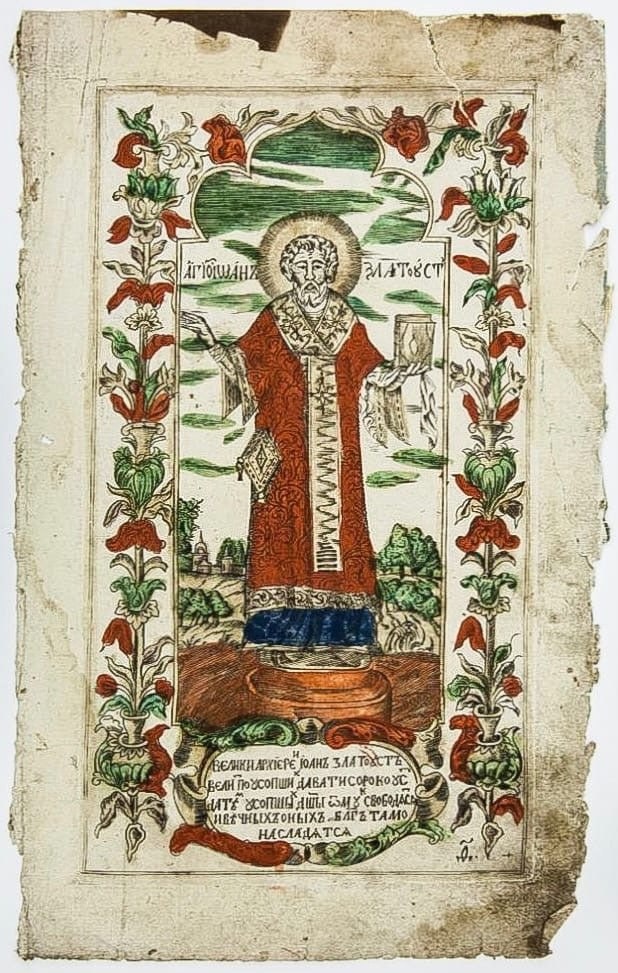 АГІОІѠАНЪ ЗЛАТОУСТ
ВЕЛИКИ АРХІЕРЕИ ІОАНЪ ЗЛАТОУСТЪ
ВЕЛИ ПО УСОПШИХ ДАВАТИ СОРОКОУС
ДАТЪ УСОПШЫХ ДШЫ МУК СВОБОДАСА
И ВѢЧНЫХЪ ОНЫХЪ БЛАГЪ ТАМО
НАСЛАДЯТСЯ